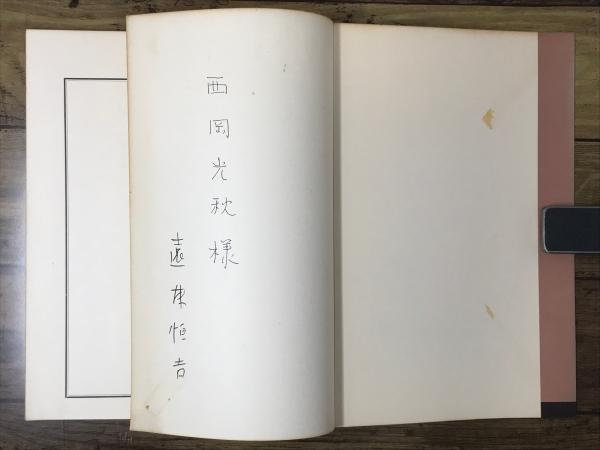 西岡光秋様
遠東恒吉